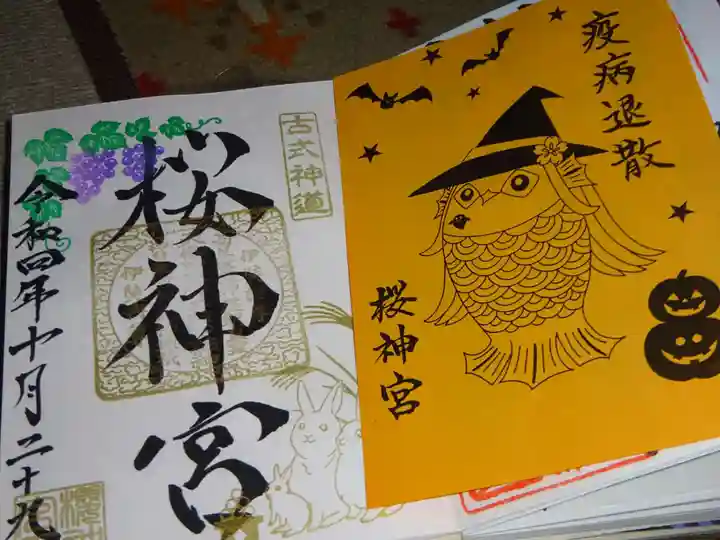 疫病退散
桜神宮
古式神道
桜神宮
令和四年十月二十九